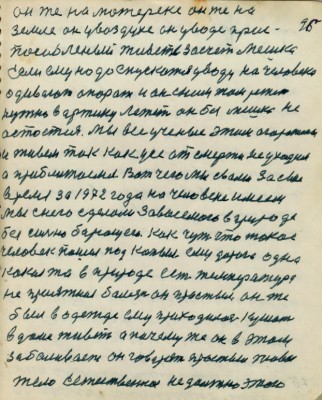 он же на мотереке он же на
земле он у воздухе он у воде прис- 95
посибленый живеть за счет мешка
если ему надо спускатся уводу на человека
одивают апорат и он с ним там
нужно в артику летит он без мешка не
астоется. Мы все ученые этим
и живем так как усе от смерти не уходим
а приблитоемся. Вот чего мы с вами за свае
время за 1972 года на человеке имеем
мы с него сделали завоевоного в природе
без сильно баючегося. Как чуть что такое
человек попал под кожный ему дорога одна
какая та в природе есть температура
не приятная балезн он простыл он же
был в одежде ему приходилос кушать
в доме живеть а почему же он в этом
заболивает он говорить простыл
тело естественое не должно этого